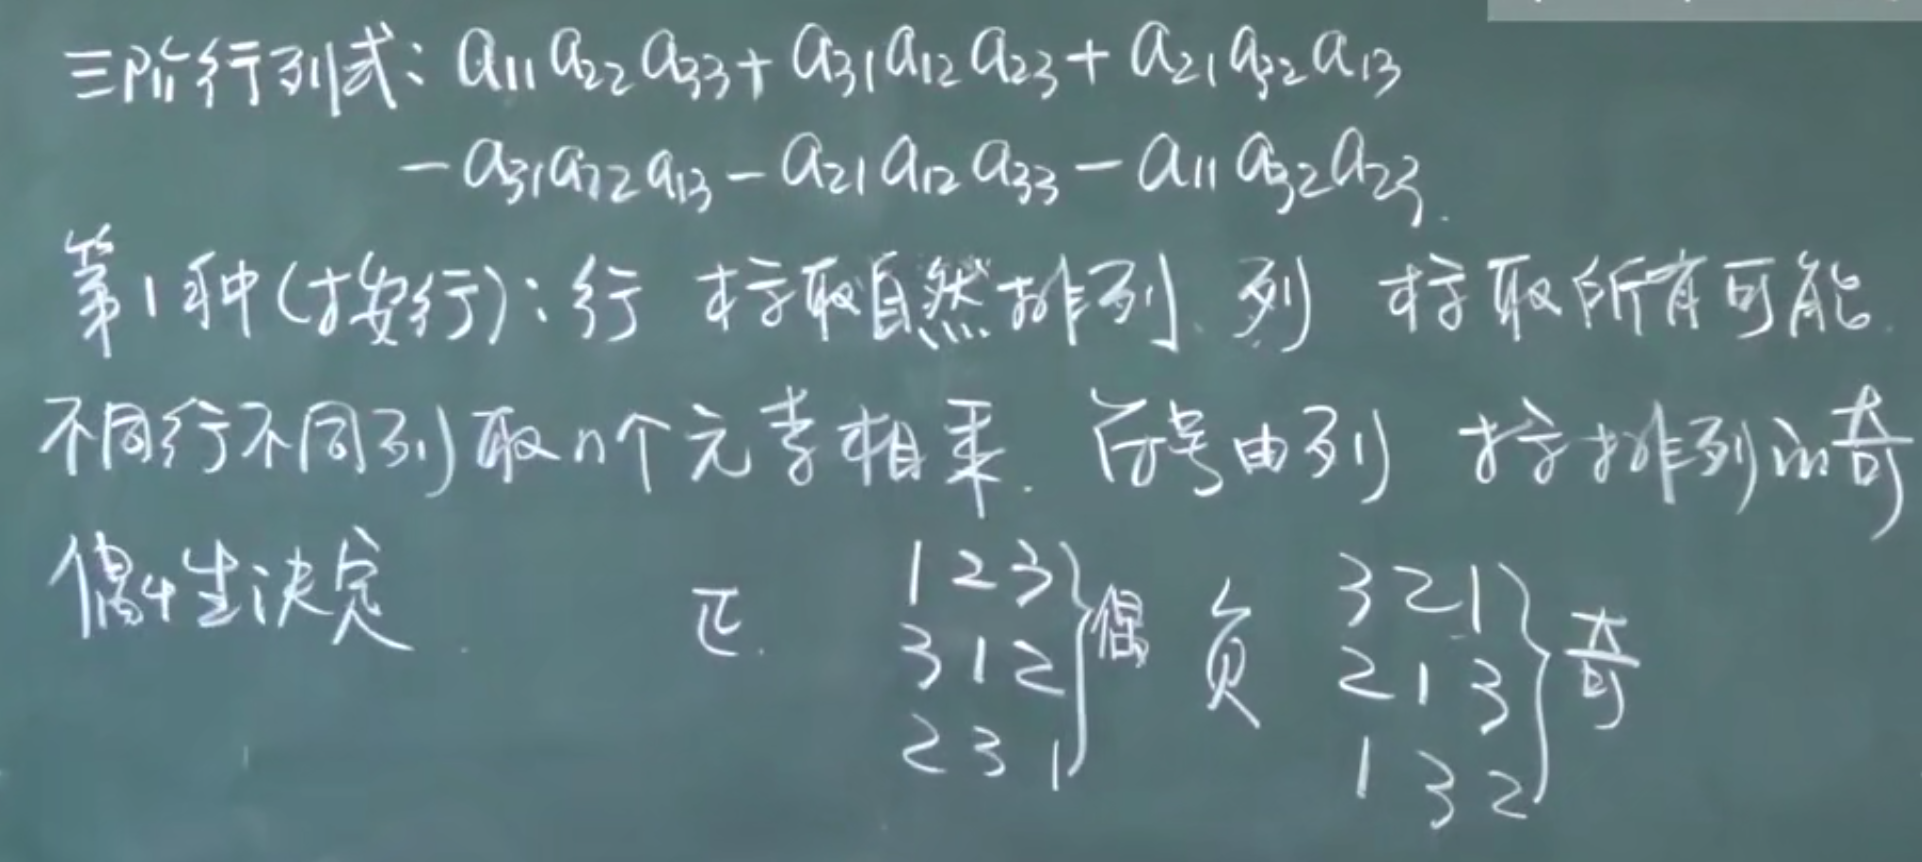 三阶行列式: a11a22a33+a31a12a23+a21a32a13
-a31a22a13-a21a12a33-a11a32a23.
第1种(按行):行 标取自然排列. 列 标取所有可能.
不同行不同列取n个元素相乘. 符号由列 标排列的奇
偶性决定. 正. 1 2 3 }偶 负 3 2 1 }奇
3 1 2 2 1 3
2 3 1 1 3 2